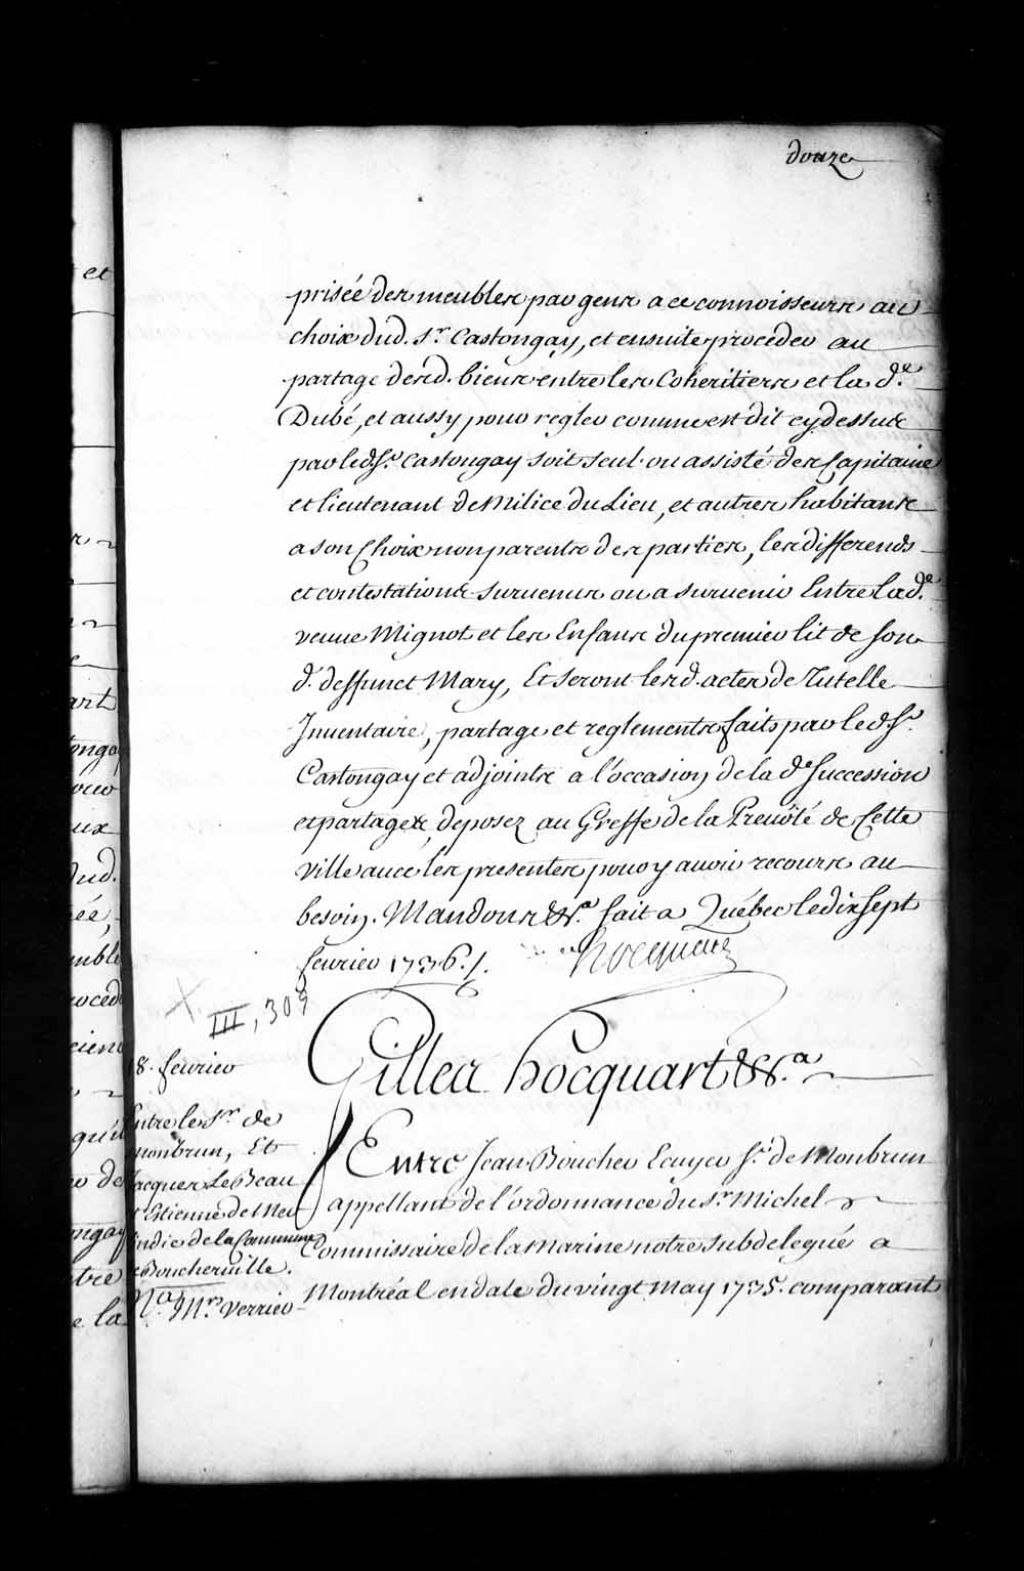 douze
prisée des meubles par gens a ce connoisseurs au
choix dud. Sr. Castongay, et ensuite proceder au
partage desd. biens entre les Coheritiers et lad. de.
Dubé, et aussy pour regler comme est dit cy dessus
par led. Sr. Castongay soit seul ou assisté des Capitaine
et lieutenant de Milice du Lieu, et autres habitans
a son Choix non parents des parties, les differends
et contestations survenus ou a survenir Entre lad. de.
veuve Mignot et les Enfans du premier lit de son
d. deffunct Mary, Et seront lesd. actes de Tutelle
Inventaire, partage et reglements faits par led. Sr.
Castongay et adjoints a l'occasion de lad. Succession
et partages, deposez au Greffe de la Prevôté de Cette
Ville avec les presentes pour y avoir recours au
besoin. Mandons &c.a fait a Québec le dix sept
fevrier 1736./.
Hocquart
III, 309
18. fevrier
Entre le Sr. de
Monbrun, Et
Jacques Le Beau
Estienne de Meu
sindic de la Commune
de Boucherville.
Na. Mr. Verrier
Gilles hocquart &c.a
Entre Jean Boucher Ecuyer Sr. de Monbrun
appellant de l'ordonnance du Sr. Michel
Commissaire de la Marine notre subdelegué a
Montréal en date du vingt May 1735. comparant
et
art
ongay
aux
dud.
ée,
mble
proced
ngay
tre
e la